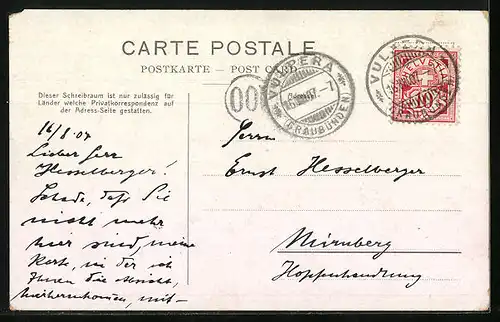 CARTE POSTALE
POSTKARTE — POST CARD
Dieser Schreibraum ist nur zulässig für
Länder welche Privatkorrespondenz auf
der Adress-Seite gestatten.
00
VULPERA
(GRAUBÜNDEN)
VULPERA
HELVETIA
10
16/8.07
Lieber Herr
Hesselberger!
Schade, daß Sie
nicht mehr
hier sind, meine
Karte, in der ich
Ihnen die
mit-
Herrn
Ernst Hesselberger
Nürnberg
Hopfenhandlung